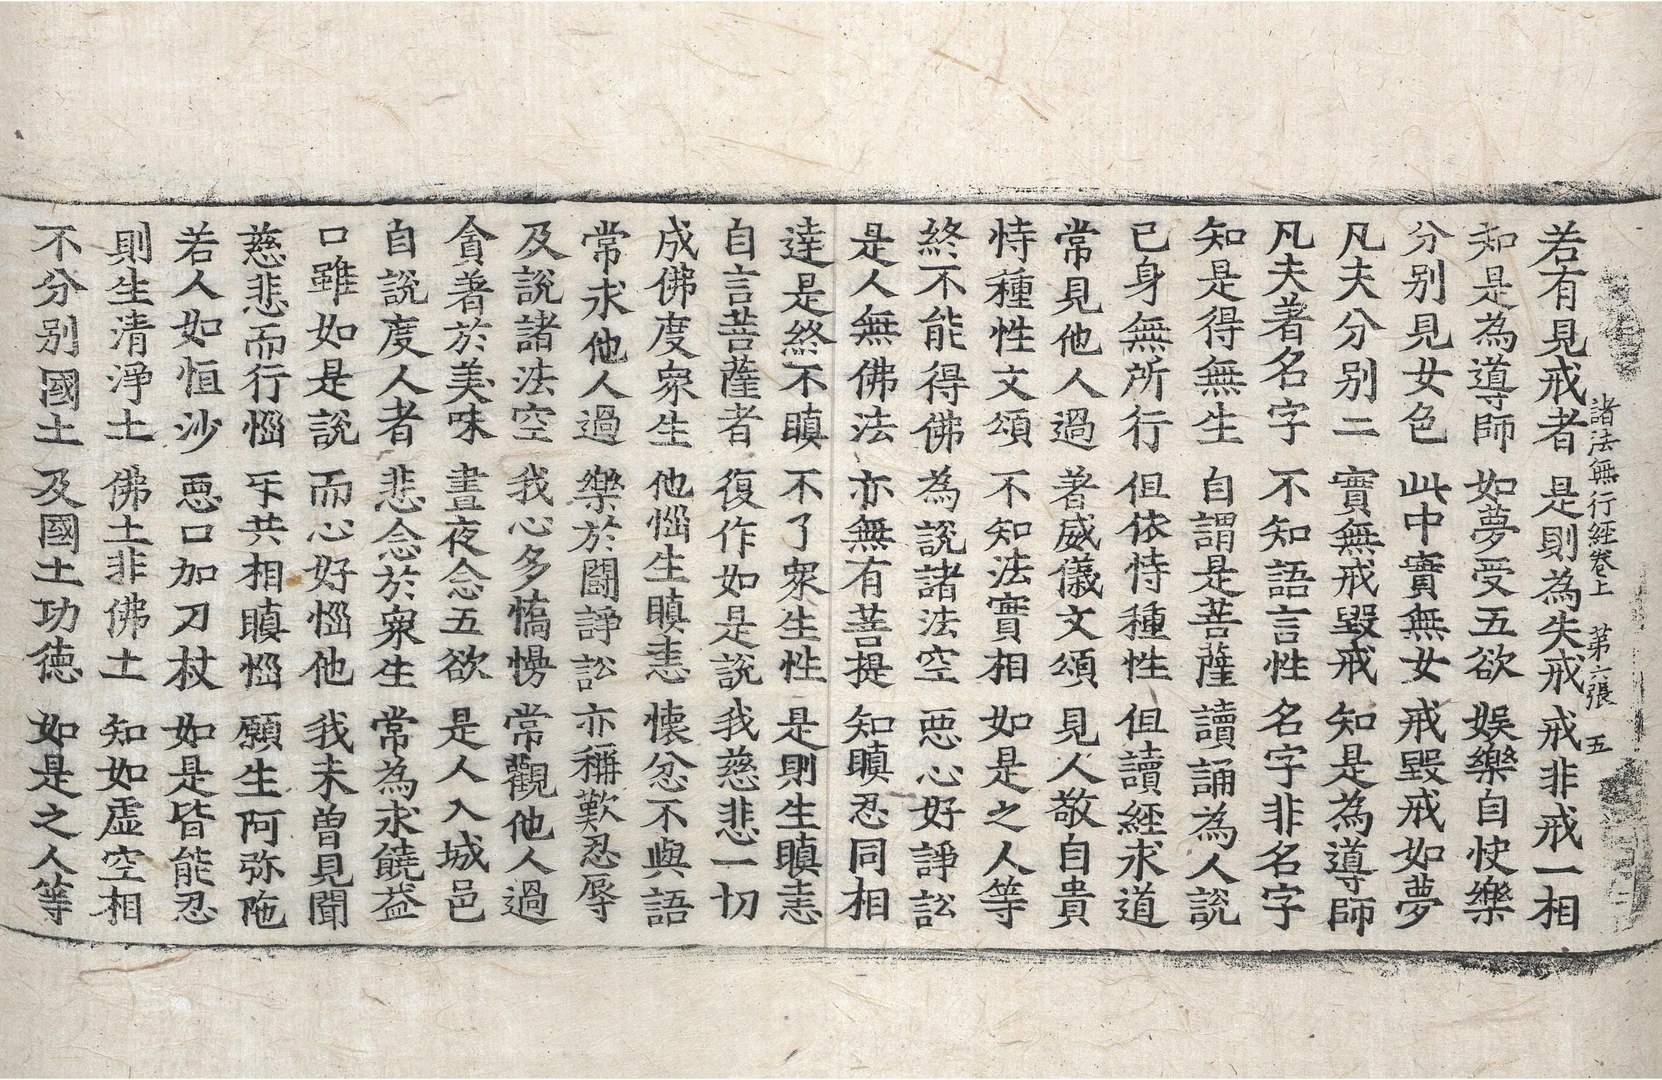 諸法無行經卷上 第六張 五
若有見戒者 是則為失戒 戒非戒一相
知是為導師 如夢受五欲 娛樂自快樂
分別見女色 此中實無女 戒毀戒如夢
凡夫分別二 實無戒毀戒 知是為導師
凡夫著名字 不知語言性 名字非名字
知是得無生 自謂是菩薩 讀誦為人說
已身無所行 但依恃種性 但讀經求道
常見他人過 著威儀文頌 見人敬自貴
恃種性文頌 不知法實相 如是之人等
終不能得佛 為說諸法空 惡心好諍訟
是人無佛法 亦無有菩提 知瞋忍同相
達是終不瞋 不了衆生性 是則生瞋恚
自言菩薩者 復作如是說 我慈悲一切
成佛度衆生 他惱生瞋恚 懷忿不與語
常求他人過 樂於鬪諍訟 亦稱歎忍辱
及說諸法空 我心多憍慢 常觀他人過
貪著於美味 晝夜念五欲 是人入城邑
自說度人者 悲念於衆生 常為求饒益
口雖如是說 而心好惱他 我未曾見聞
慈悲而行惱 乎共相瞋惱 願生阿弥陁
若人如恒沙 惡口加刀杖 如是皆能忍
則生清淨土 佛土非佛土 知如虛空相
不分別國土 及國土功德 如是之人等